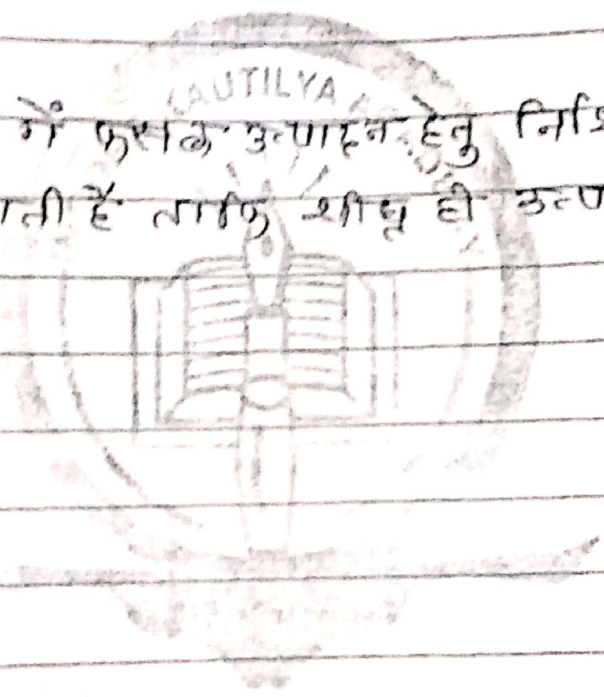 KAUTILYA
में फसल उत्पादन हेतु
है ताकि शीघ्र ही